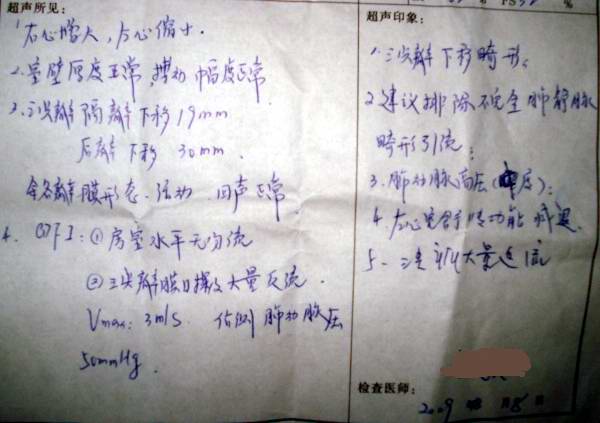 超声所见:
1 右心增大,左心缩小.
2. 室壁厚度正常,搏动幅度正常
3. 三尖瓣隔瓣下移19mm
后瓣下移 30mm.
余各瓣膜形态、活动、回声正常.
4. CDFI: ① 房室水平无分流
② 三尖瓣膜口探及大量反流.
Vmax: 3m/s. 估测肺动脉压
50mmHg.
% 
超声印象:
1. 三尖瓣下移畸形;
2 建议排除不完全肺静脉
畸形引流;
3. 肺动脉高压(度);
4. 左心室舒功能减退.
5. 三尖瓣大量返流
检查医师:
2009 年 月